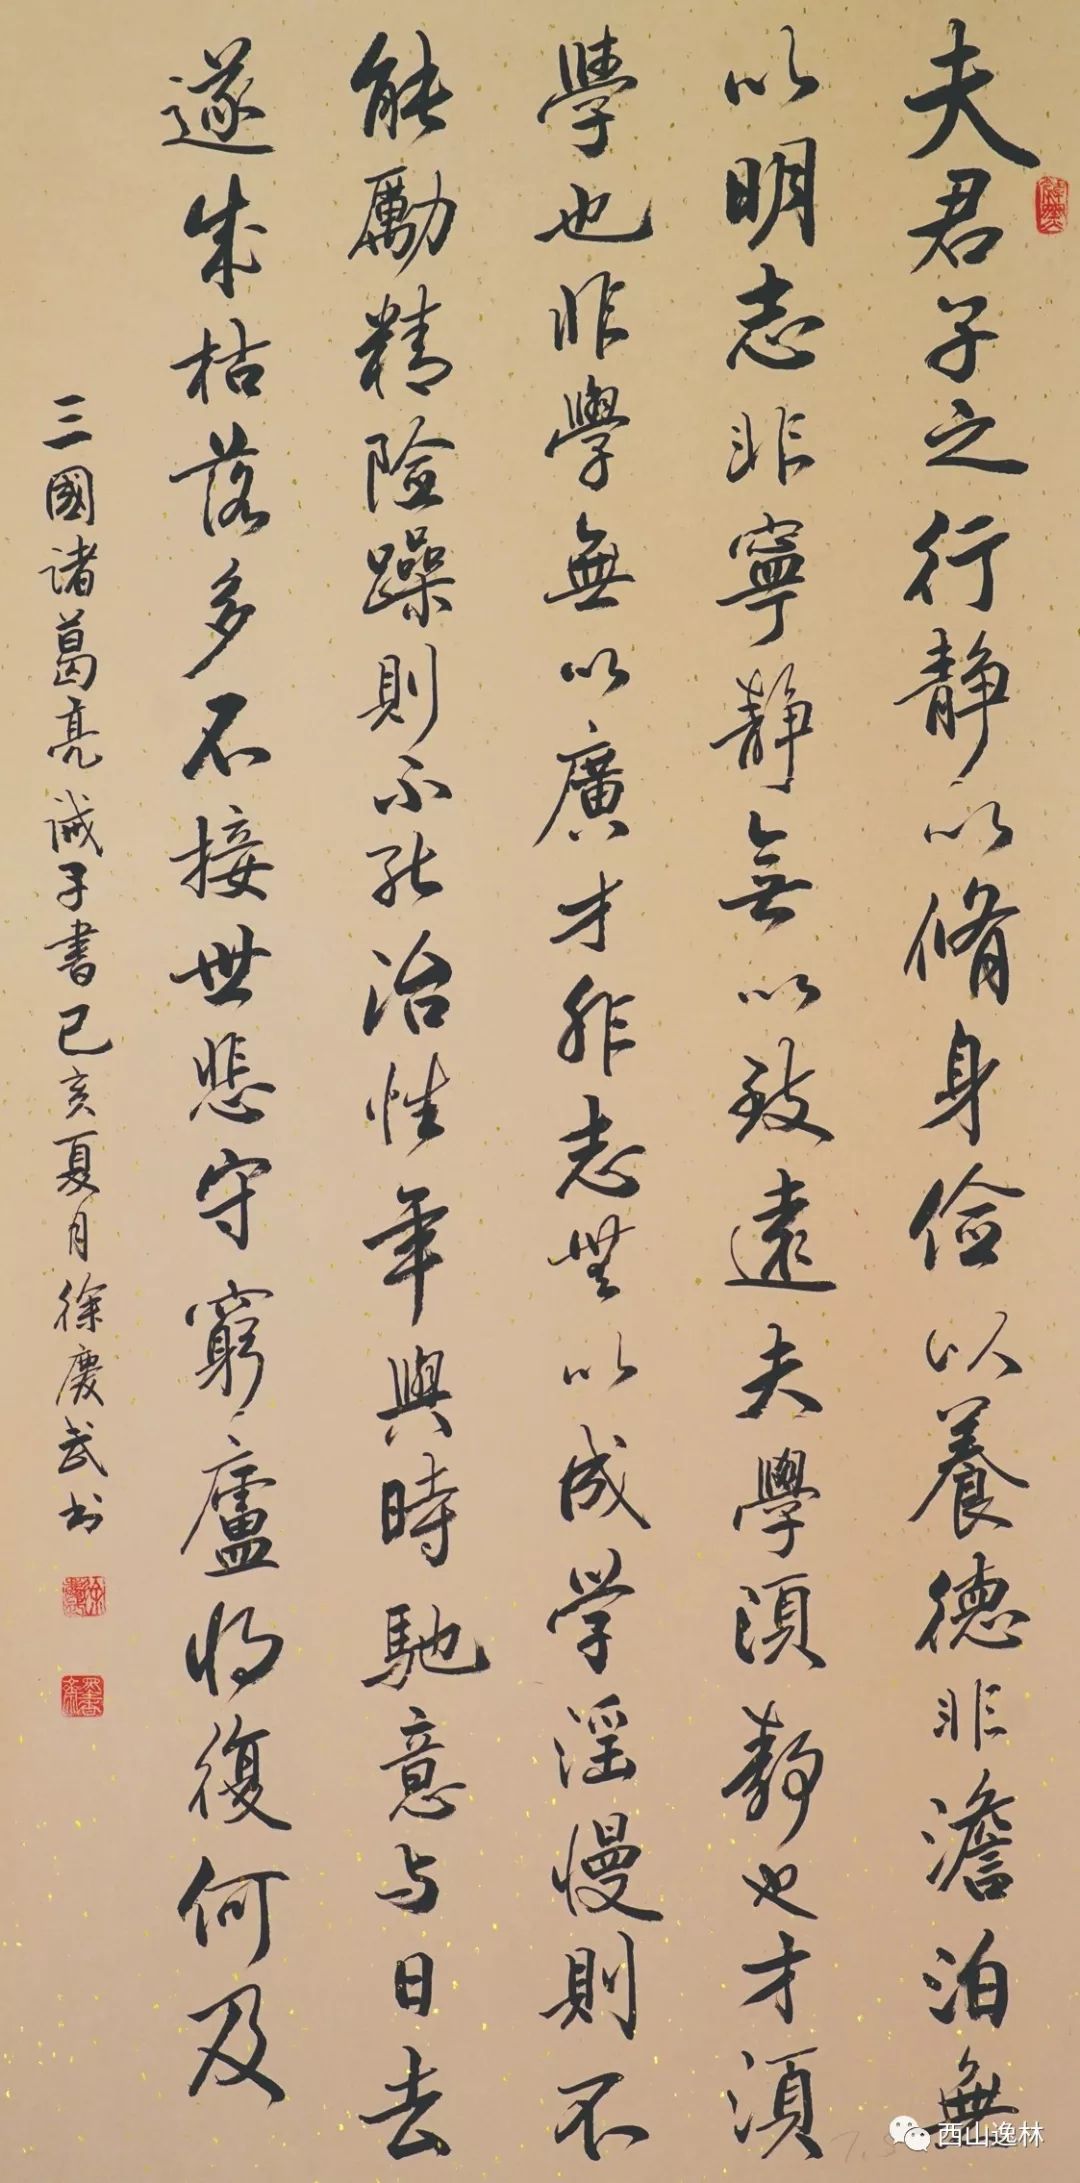 夫君子之行静以脩身俭以養德非澹泊無
以明志非寧静無以致遠夫學須靜也才須
學也非學無以廣才非志無以成学淫慢則不
能勵精險躁則不能治性年與時馳意与日去
遂成枯落多不接世悲守窮廬将復何及
三國诸葛亮诫子書己亥夏月徐慶武书
西山逸林